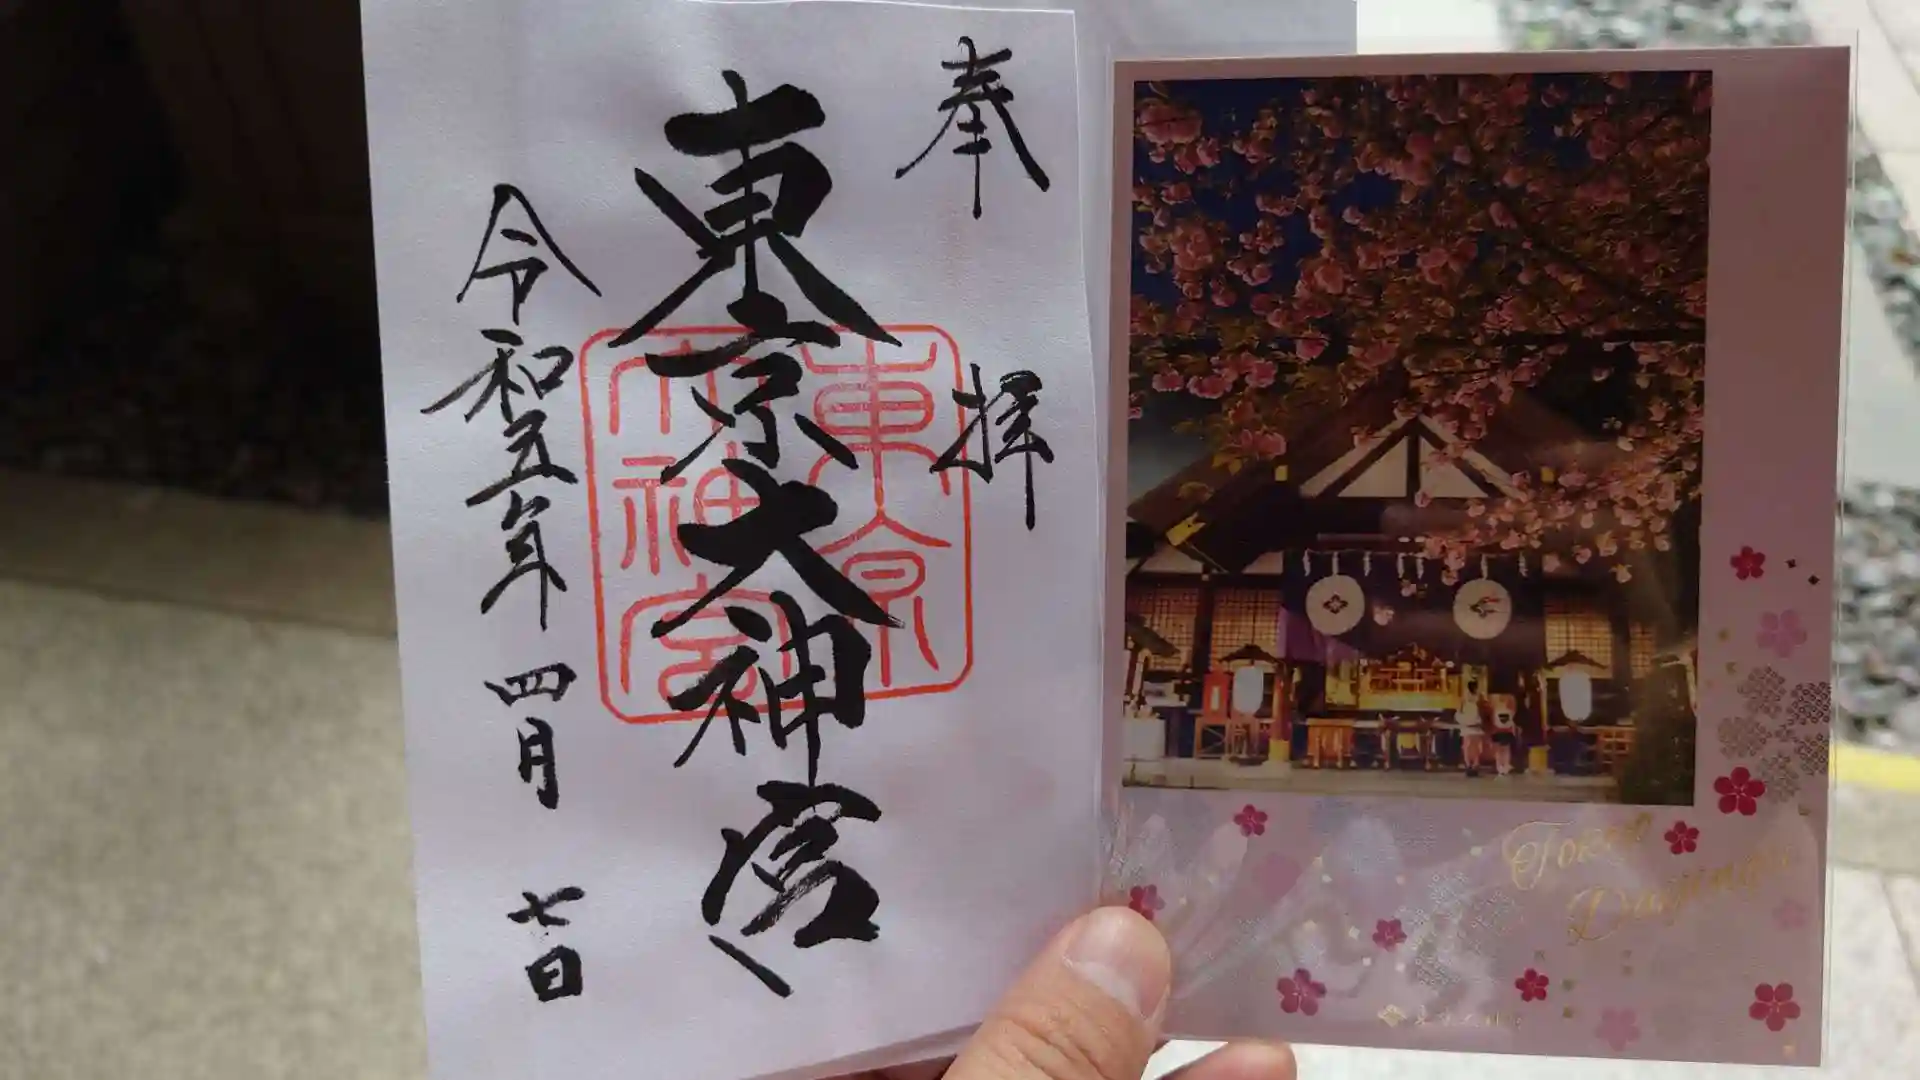 奉拝
東京大神宮
令和五年四月七日
東京
大神宮
Tokyo
Daijingu
東京大神宮